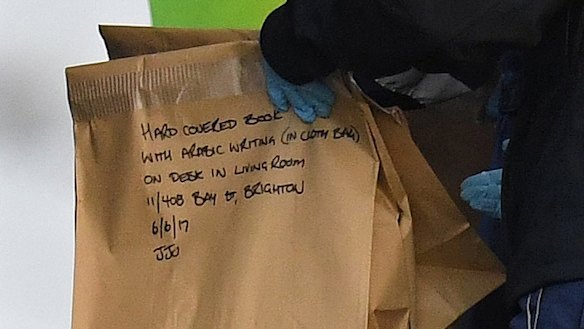 HARD COVERED BOOK
WITH ARABIC WRITING (IN CLOTH BAG)
ON DESK IN LIVING ROOM
11/408 BAY St, BRIGHTON
6/6/17
JJJ